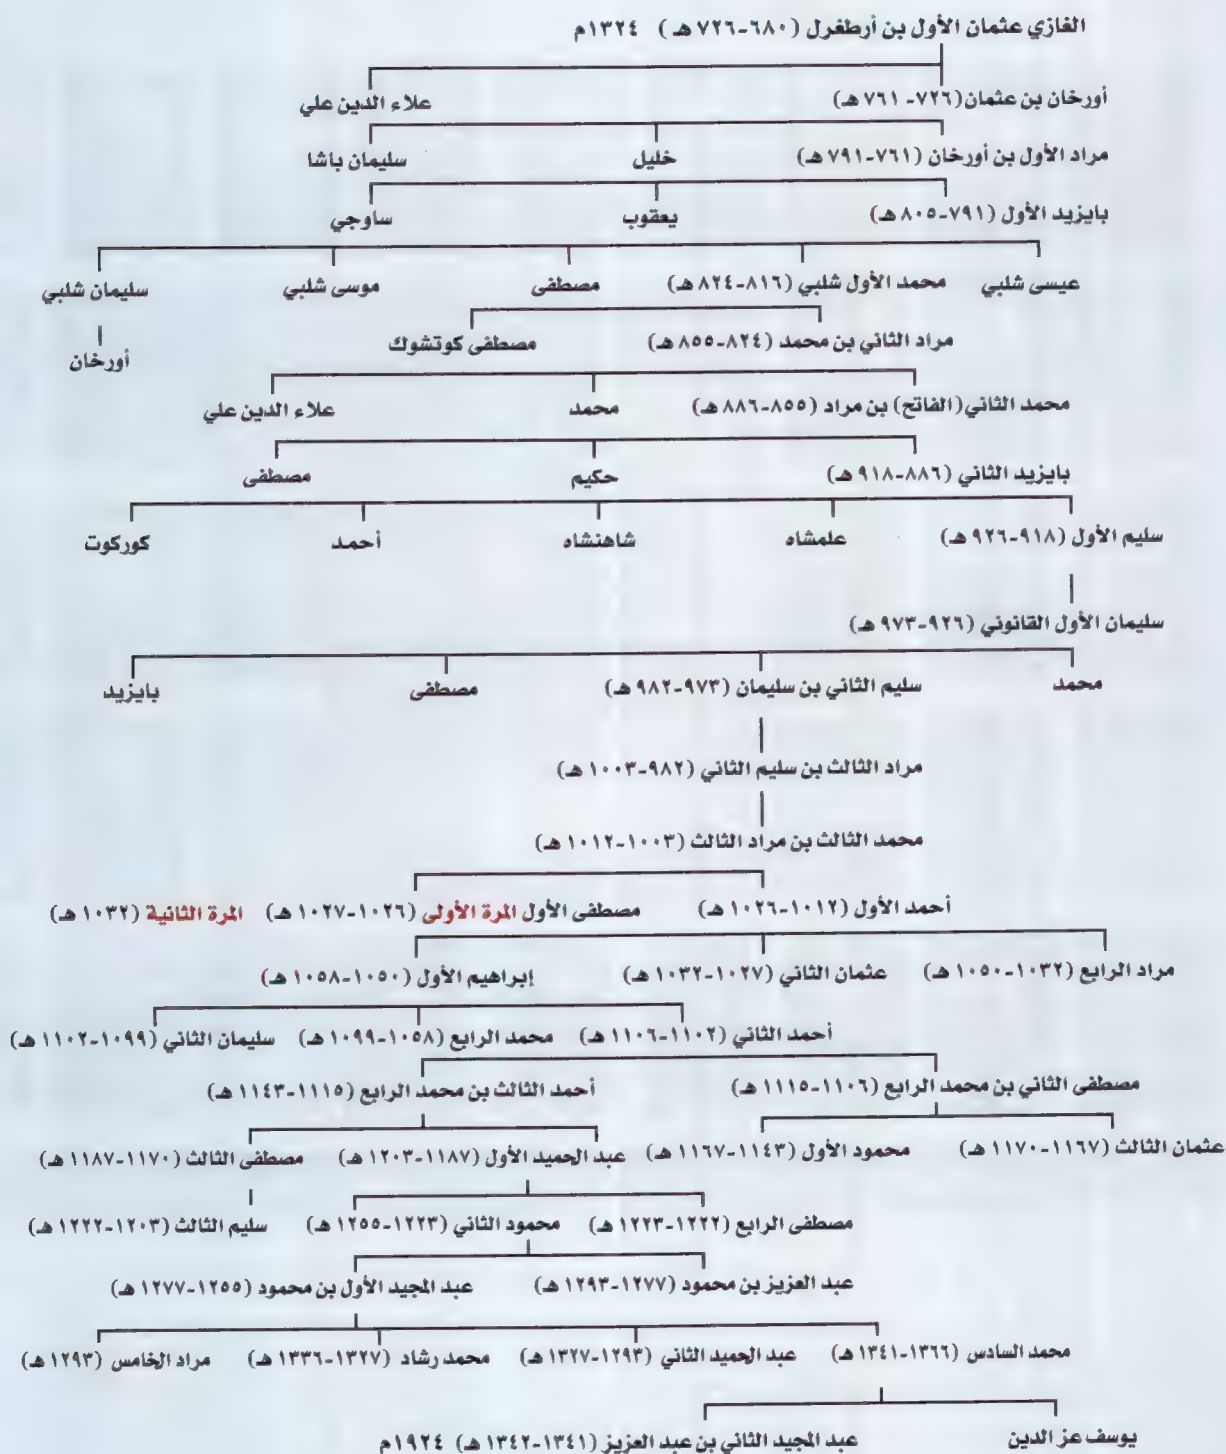 الغازي عثمان الأول بن أرطغرل (٦٨٠-٧٢٦ هـ) ١٣٢٤م
أورخان بن عثمان (٧٢٦-٧٦١ هـ) علاء الدين علي
مراد الأول بن أورخان (٧٦١-٧٩١ هـ) خليل سليمان باشا
بايزيد الأول (٧٩١-٨٠٥ هـ) يعقوب ساوجي
عيسى شلبي محمد الأول شلبي (٨١٦-٨٢٤ هـ) مصطفى موسى شلبي سليمان شلبي
مراد الثاني بن محمد (٨٢٤-٨٥٥ هـ) مصطفى كوتشوك أورخان
محمد الثاني (الفاتح) بن مراد (٨٥٥-٨٨٦ هـ) محمد علاء الدين علي
بايزيد الثاني (٨٨٦-٩١٨ هـ) حكيم مصطفى
سليم الأول (٩١٨-٩٢٦ هـ) علمشاه شاهنشاه أحمد كوركوت
سليمان الأول القانوني (٩٢٦-٩٧٣ هـ)
محمد سليم الثاني بن سليمان (٩٧٣-٩٨٢ هـ) مصطفى بايزيد
مراد الثالث بن سليم الثاني (٩٨٢-١٠٠٣ هـ)
محمد الثالث بن مراد الثالث (١٠٠٣-١٠١٢ هـ)
أحمد الأول (١٠١٢-١٠٢٦ هـ) مصطفى الأول المرة الأولى (١٠٢٦-١٠٢٧ هـ) المرة الثانية (١٠٣٢ هـ)
مراد الرابع (١٠٣٢-١٠٥٠ هـ) عثمان الثاني (١٠٢٧-١٠٣٢ هـ) إبراهيم الأول (١٠٥٠-١٠٥٨ هـ)
أحمد الثاني (١١٠٢-١١٠٦ هـ) محمد الرابع (١٠٥٨-١٠٩٩ هـ) سليمان الثاني (١٠٩٩-١١٠٢ هـ)
مصطفى الثاني بن محمد الرابع (١١٠٦-١١١٥ هـ) أحمد الثالث بن محمد الرابع (١١١٥-١١٤٣ هـ)
عثمان الثالث (١١٦٧-١١٧٠ هـ) محمود الأول (١١٤٣-١١٦٧ هـ) عبد الحميد الأول (١١٨٧-١٢٠٣ هـ) مصطفى الثالث (١١٧٠-١١٨٧ هـ)
مصطفى الرابع (١٢٢٢-١٢٢٣ هـ) محمود الثاني (١٢٢٣-١٢٥٥ هـ) سليم الثالث (١٢٠٣-١٢٢٢ هـ)
عبد العزيز بن محمود (١٢٧٧-١٢٩٣ هـ) عبد المجيد الأول بن محمود (١٢٥٥-١٢٧٧ هـ)
محمد السادس (١٣٦٦-١٣٤١ هـ) عبد الحميد الثاني (١٢٩٣-١٣٢٧ هـ) محمد رشاد (١٣٢٧-١٣٣٦ هـ) مراد الخامس (١٢٩٣ هـ)
يوسف عز الدين عبد المجيد الثاني بن عبد العزيز (١٣٤١-١٣٤٢ هـ) ١٩٢٤م